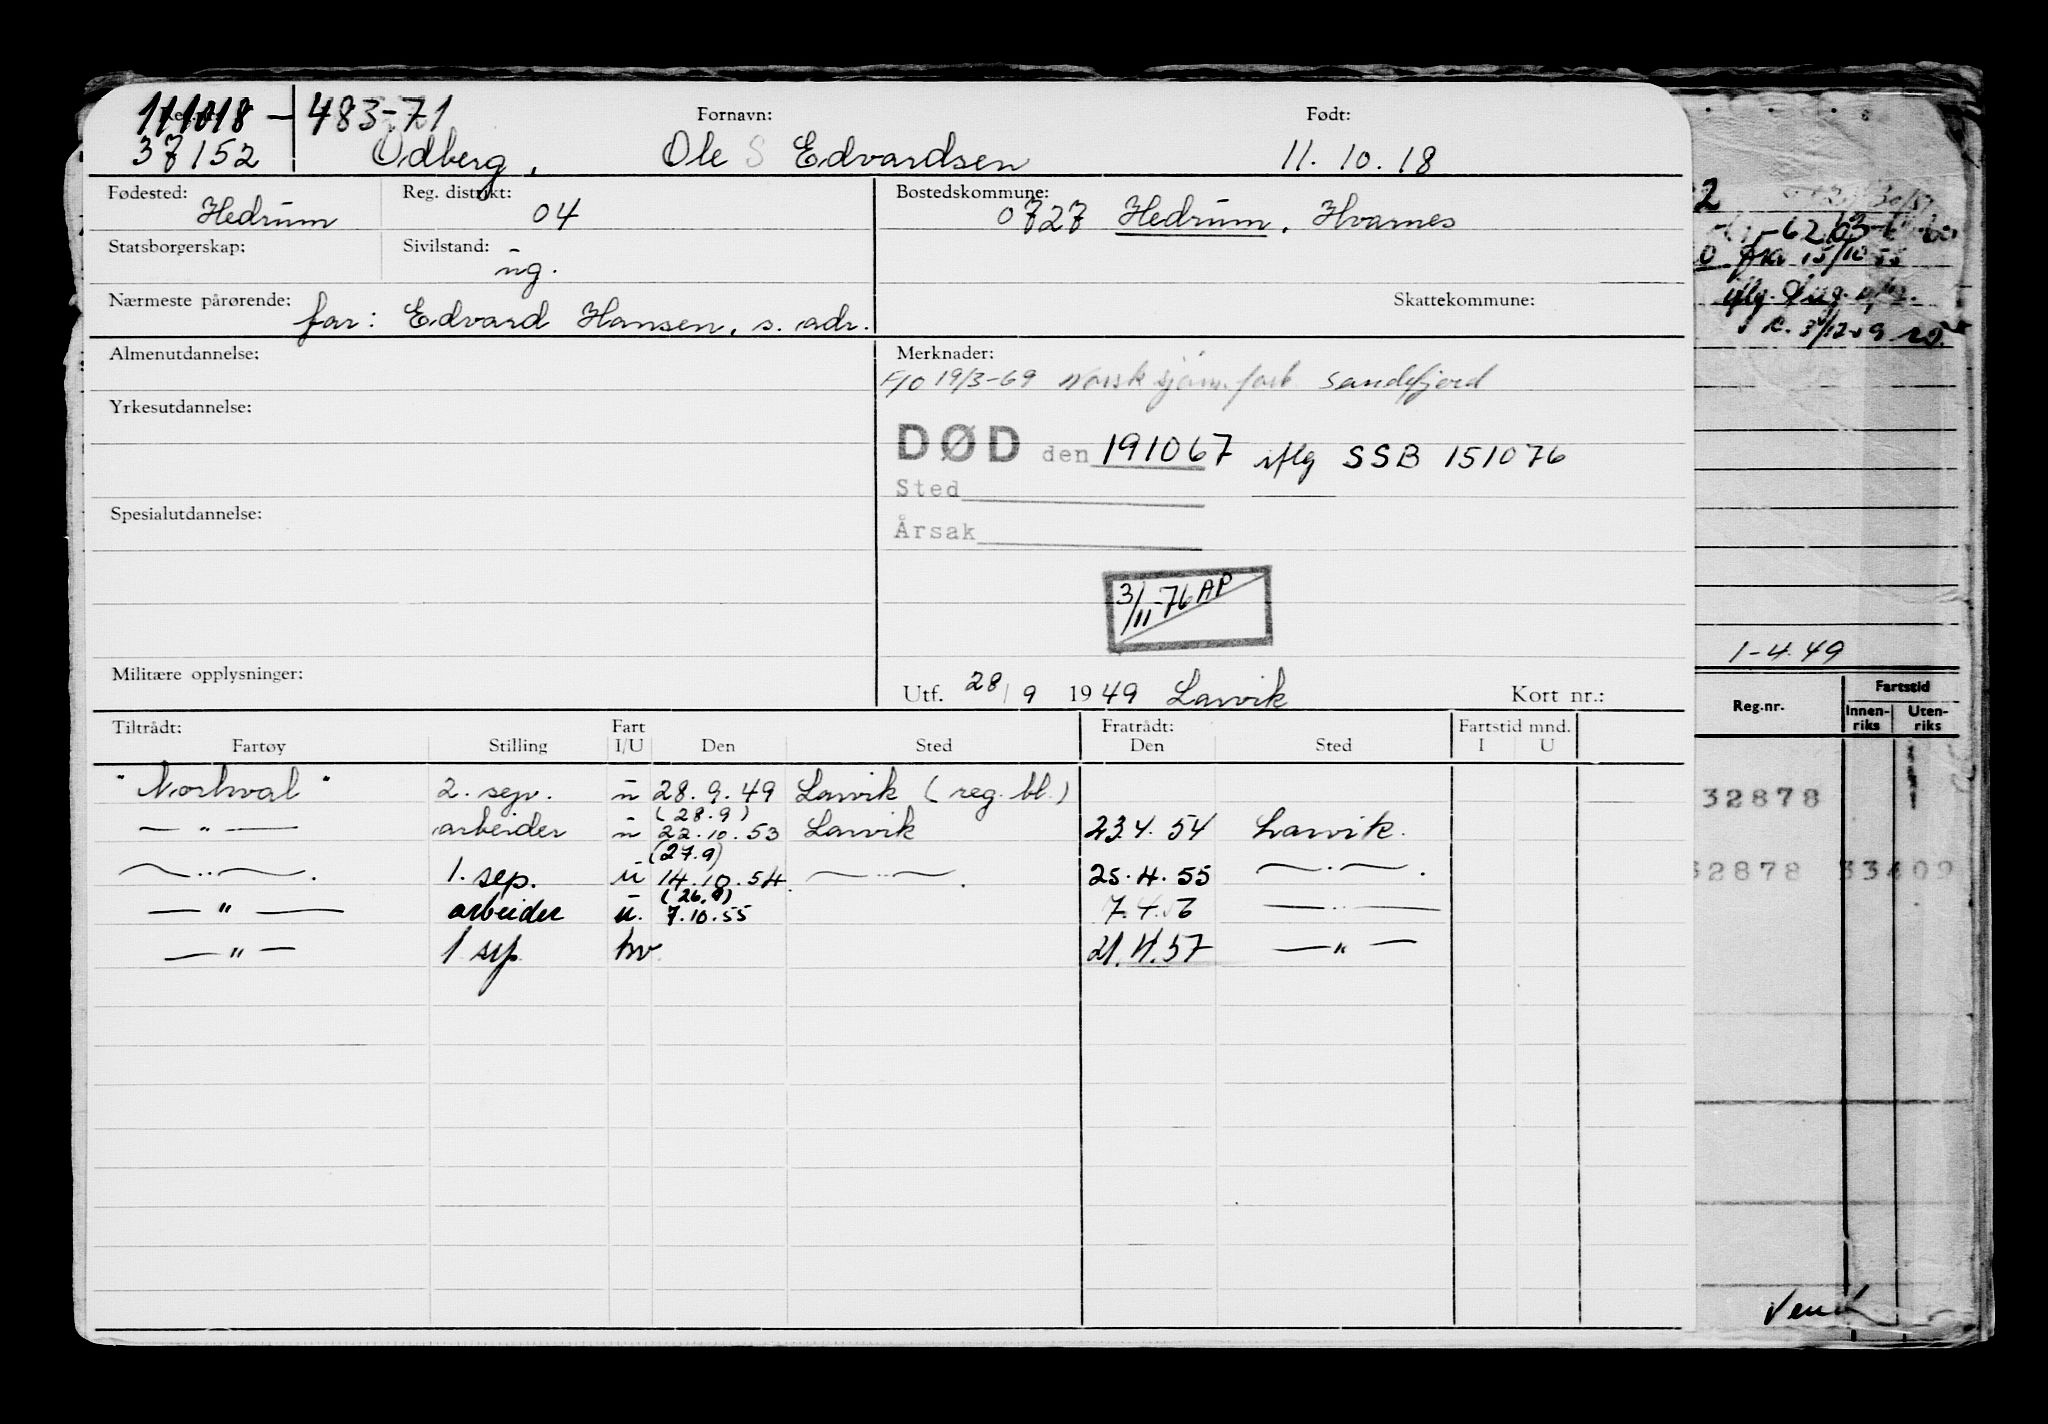 111018 - 483-71 Fornavn: Født:
37152 Odberg, Ole S Edvardsen 11.10.18
Fødested: Hedrum Reg. distrikt: 04 Bostedskommune: 0727 Hedrum, Hvarnes
Statsborgerskap: Sivilstand: ug.
Nærmeste pårørende: far: Edvard Hansen, s. adr. Skattekommune:
Almenutdannelse: Merknader:
F/O 19/3-69 Norsk sjøm.forb Sandefjord
Yrkesutdannelse:
DØD den 191067 iflg SSB 151076
Sted
Spesialutdannelse:
Årsak
3/11-76 AP
Militære opplysninger:
Utf. 28/9 1949 Larvik Kort nr.:
Tiltrådt: Fart Fratrådt: Fartstid mnd.
Fartøy Stilling I/U Den Sted Den Sted I U
"Norhval" 2. sep. u 28.9.49 Larvik (reg. bl.)
(28.9)
— " — arbeider u 22.10.53 Larvik 23.4.54 Larvik.
(27.9)
— " —. 1. sep. u 14.10.54. — " —. 25.4.55 — " —.
(26.9)
— " — arbeider u. 7.10.55 7.4.56 — " —
— " — 1 sep hv. 21.4.57 — " —
2
fra 15/10 55
1-4.49
Reg.nr. Fartstid
Innen-riks Uten-riks
32878
32878 33409
Vend